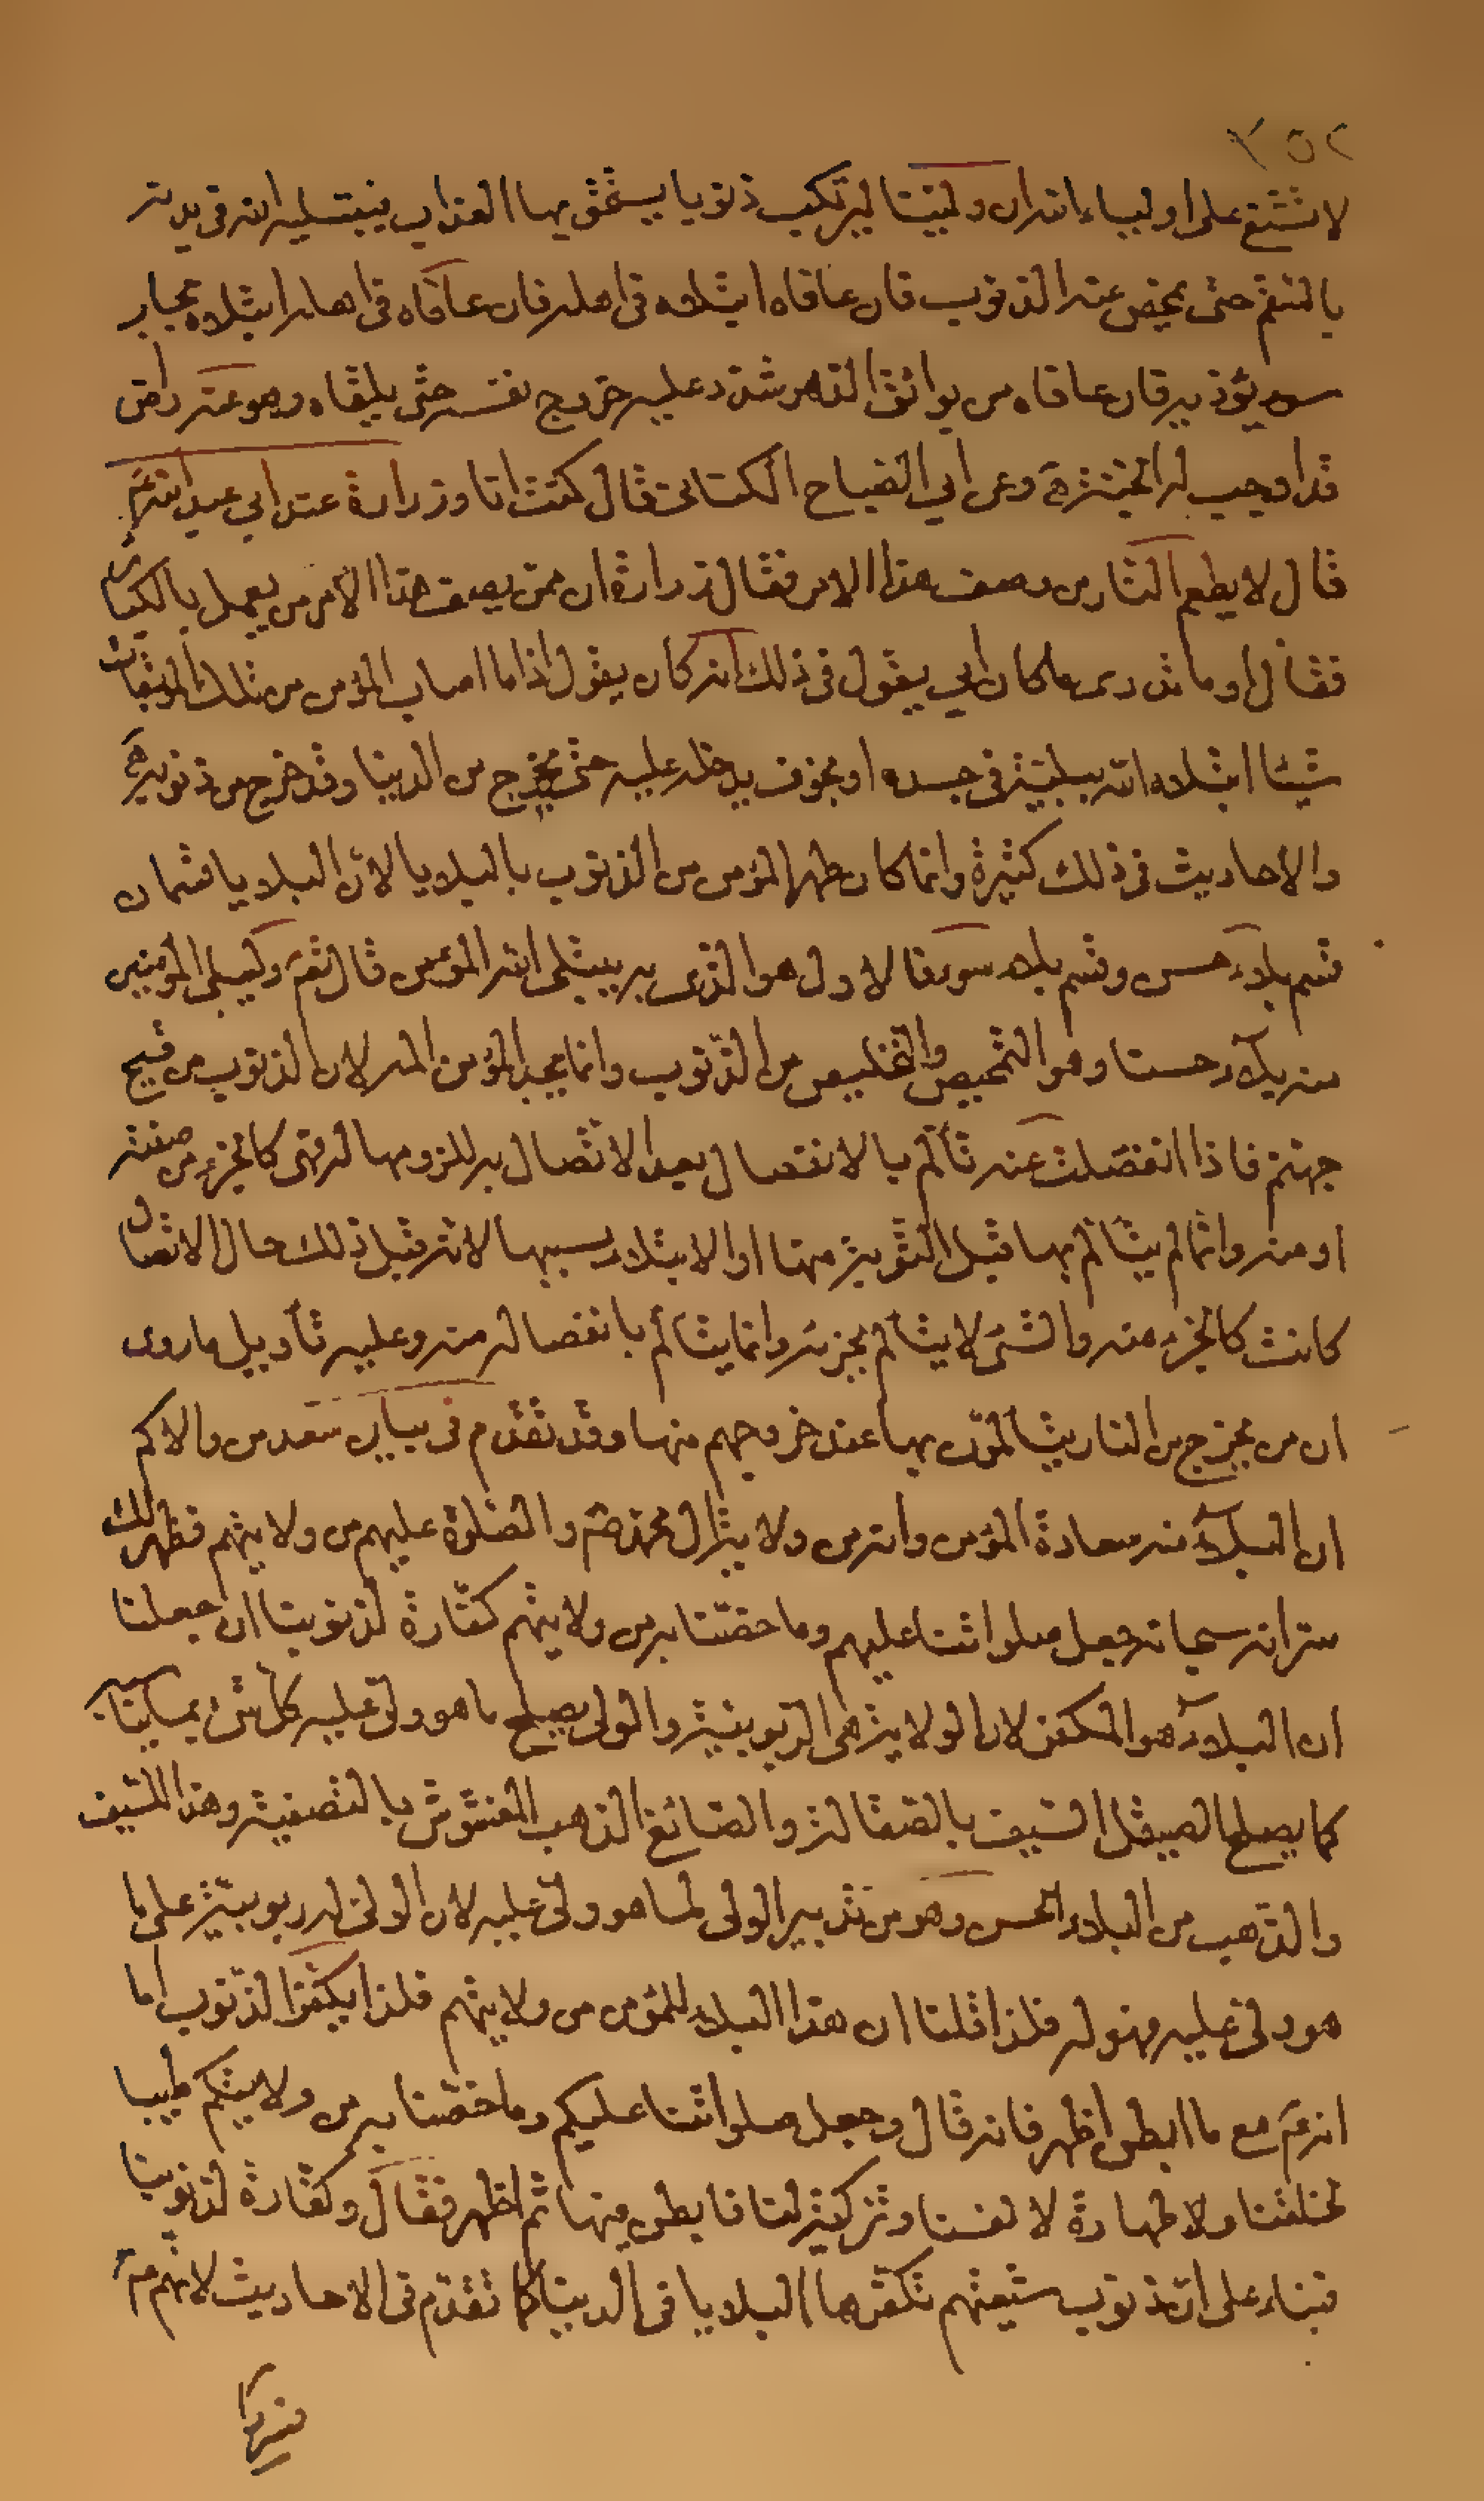 ٣٥٢
لا تشنع على اولياء الله ان ولينا ليرتكب ذنوبا يستحق بها العذاب فيبتليه الله في بدنه
بالسقم حتى يمحص عنه الذنوب فان عافاه ابتلاه في ماله فان عافاه في اهله ابتلاه بجار
سوء يؤذيه فان عافاه من بوائق الدهر شدد عليه خروج نفسه حتى يلقاه وهو عنه راض
قد اوجب له الجنة وعن ابي الصباح الكناني قال كنت انا وزرارة عند ابي عبد الله ع
قال لا يطعم النار من وصف هذا الامر فقال زرارة ان ممن يصف هذا الامر من يعمل بالكبائر
فقال او ما تدري ما كان ابي يقول في ذلك انه كان يقول اذا ما اصاب المؤمن من تلك الموبقات
شيئا ابتلاه الله ببلية في جسده او بخوف يدخله عليه حتى يخرج من الدنيا وقد خرج من ذنوبه
والاحاديث في ذلك كثيرة وانما كان طهر المؤمن من الذنوب بالبلايا لان البلايا قسمان
قسم بلاء حسن وقسم بلاء سوء فالاول هو الذي به يبتلى الله المؤمن قال تعم وليبلى المؤمنين
منه بلاء حسنا وهو التمحيص والتخليص من الذنوب وانما يجد المؤمن المه لان الذنوب من فيح
جهنم فاذا انفصلت عنه تألم بالانفصال بعد الاتصال به للزومها له فهى كالجزء من صفته
او منه وانما لم يتألم بها قبل التوبة منها او الابتلاء بسببها لانه قبل ذلك حال الاتصال
كانت كالجزء منه والشئ لا يتألم بجزئه وانما يتألم بانفصاله منه وعليه تأويل ما روى
ان من يخرج من النار يتألمون بها عند خروجهم منها وقد تقدم في بيان سعد من والاكم
ان البلاء منه سعادة المؤمن وانه من ولاية ال محمد ص والصلوة عليهم من ولايتهم فظهر لك
سر انه سبحانه جعل صلواتنا عليهم وما خصنا به من ولايتهم كفارة لذنوبنا ان جعلنا
ان البلاء هو المكفر لان الولاية هى الربوبية والولى يصلح ما هو ولى عليه كل شئ بما يناسبه
كما يصلح الصيقل السيف بالصقالة والصائغ الذهب المغشوش بالتصفية وهذا للسيف
والذهب من البلاء الحسن وهو من تدبير الولى لما هو ولى عليه لان الولى له ربوبية على ما
هو ولى عليه فهو له فلذا قلنا ان هذا البلاء للمؤمن من ولايتهم فلذا يكفر الذنوب اما
انه ع مع ما ابطن اظهر فانه قال وجعل صلواتنا عليكم وما خصنا به من ولايتكم طيبا
لخلقنا ولا طهارة لانفسنا وتزكية لنا فابطن منها ثم اظهر فقال وكفارة لذنوبنا
فبناء على ان ذنوب شيعتهم تكفرها البلايا في الدنيا كما تقدم في الاحاديث لانهم ع